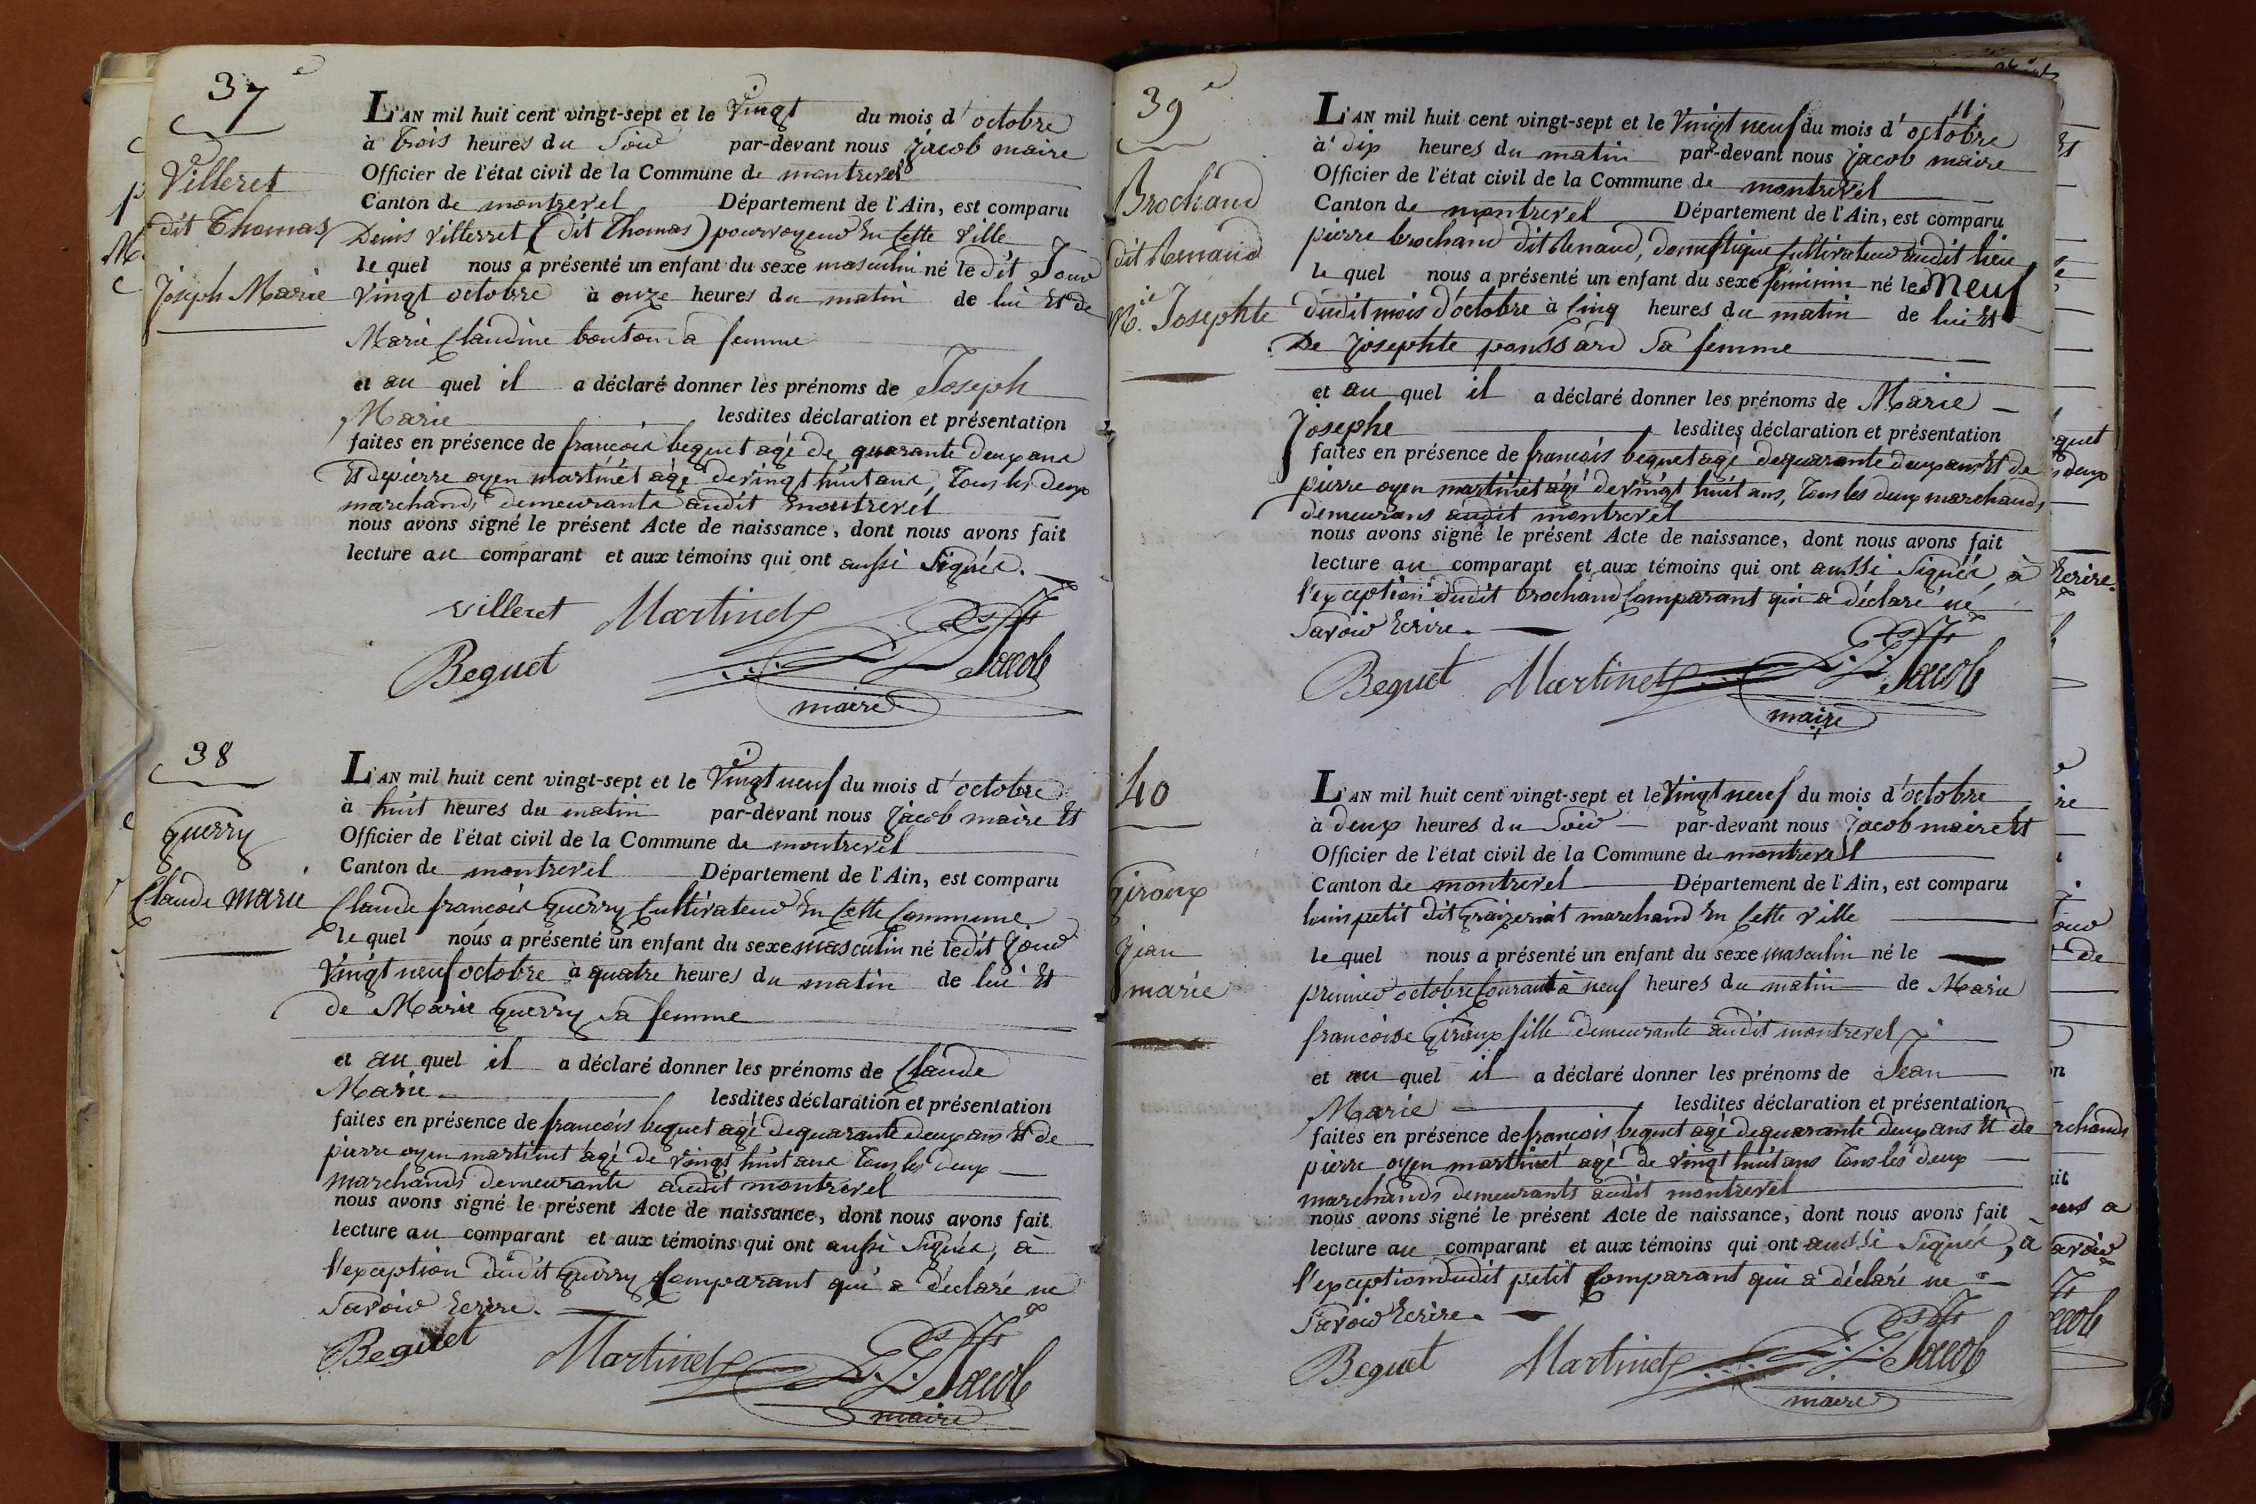 37e
Villeret
dit Thomas
Joseph Marie
L'AN mil huit cent vingt-sept et le Vingt du mois d'octobre
à trois heures du Soir par-devant nous Jacob maire
Officier de l'état civil de la Commune de montrevel
Canton de montrevel Département de l'Ain, est comparu
Denis Villerret (dit Thomas) pourvoyeur En Cette Ville
le quel nous a présenté un enfant du sexe masculin né le dit Jour
Vingt octobre à onze heures du matin de lui Et de
Marie Claudine bouton sa femme
et au quel il a déclaré donner les prénoms de Joseph
Marie lesdites déclaration et présentation
faites en présence de françois bequet agé de quarante deux ans
Et de pierre oyen martinet agé de vingt huit ans, Tous les deux
marchands demeurants audit montrevel
nous avons signé le présent Acte de naissance, dont nous avons fait
lecture au comparant et aux témoins qui ont aussi Signés.
Villeret Martinet
Bequet Jacob
maire
38
Guerry
Claude Marie
L'AN mil huit cent vingt-sept et le Vingt neuf du mois d'octobre
à huit heures du matin par-devant nous Jacob maire Et
Officier de l'état civil de la Commune de montrevel
Canton de montrevel Département de l'Ain, est comparu
Claude françois Guerry Cultivateur En Cette Commune
le quel nous a présenté un enfant du sexe masculin né ledit Jour
Vingt neuf octobre à quatre heures du matin de lui Et
de Marie Guerry sa femme
et au quel il a déclaré donner les prénoms de Claude
Marie lesdites déclaration et présentation
faites en présence de françois bequet agé de quarante deux ans Et de
pierre oyen martinet agé de vingt huit ans Tous les deux
marchands demeurants audit montrevel
nous avons signé le présent Acte de naissance, dont nous avons fait
lecture au comparant et aux témoins qui ont aussi Signés, à
l'exception dudit Guerry Comparant qui a déclaré ne
Savoir Ecrire.
Bequet Martinet Jacob
maire
39e
Brochand
dit Renaud
M.ie Josephte
11
L'AN mil huit cent vingt-sept et le Vingt neuf du mois d'octobre
à dix heures du matin par-devant nous Jacob maire
Officier de l'état civil de la Commune de montrevel
Canton de montrevel Département de l'Ain, est comparu
pierre brochand dit Renaud, domestique Cultivateur audit lieu
le quel nous a présenté un enfant du sexe féminin né le Neuf
dudit mois d'octobre à Cinq heures du matin de lui Et
De Josephte poussard Sa femme
et au quel il a déclaré donner les prénoms de Marie
Josephe lesdites déclaration et présentation
faites en présence de françois bequet agé de quarante deux ans Et de
pierre oyen martinet agé de vingt huit ans, Tous les deux marchands
demeurans audit montrevel
nous avons signé le présent Acte de naissance, dont nous avons fait
lecture au comparant et aux témoins qui ont aussi Signés, à
l'exception dudit brochand Comparant qui a déclaré ne
Savoir Ecrire.
Bequet Martinet Jacob
maire
40
Giroux
Jean
marie
L'AN mil huit cent vingt-sept et le Vingt neuf du mois d'octobre
à deux heures du Soir par-devant nous Jacob maire Et
Officier de l'état civil de la Commune de montrevel
Canton de montrevel Département de l'Ain, est comparu
louis petit dit Graizeriat marchand En Cette Ville
le quel nous a présenté un enfant du sexe masculin né le
premier octobre Courant à neuf heures du matin de Marie
françoise Giroux fille demeurante audit montrevel
et au quel il a déclaré donner les prénoms de Jean
Marie lesdites déclaration et présentation
faites en présence de françois bequet agé de quarante deux ans Et de
pierre oyen martinet agé de vingt huit ans Tous les deux
marchands demeurants audit montrevel
nous avons signé le présent Acte de naissance, dont nous avons fait
lecture au comparant et aux témoins qui ont aussi Signés, à
l'exception dudit petit Comparant qui a déclaré ne
Savoir Ecrire.
Bequet Martinet Jacob
maire